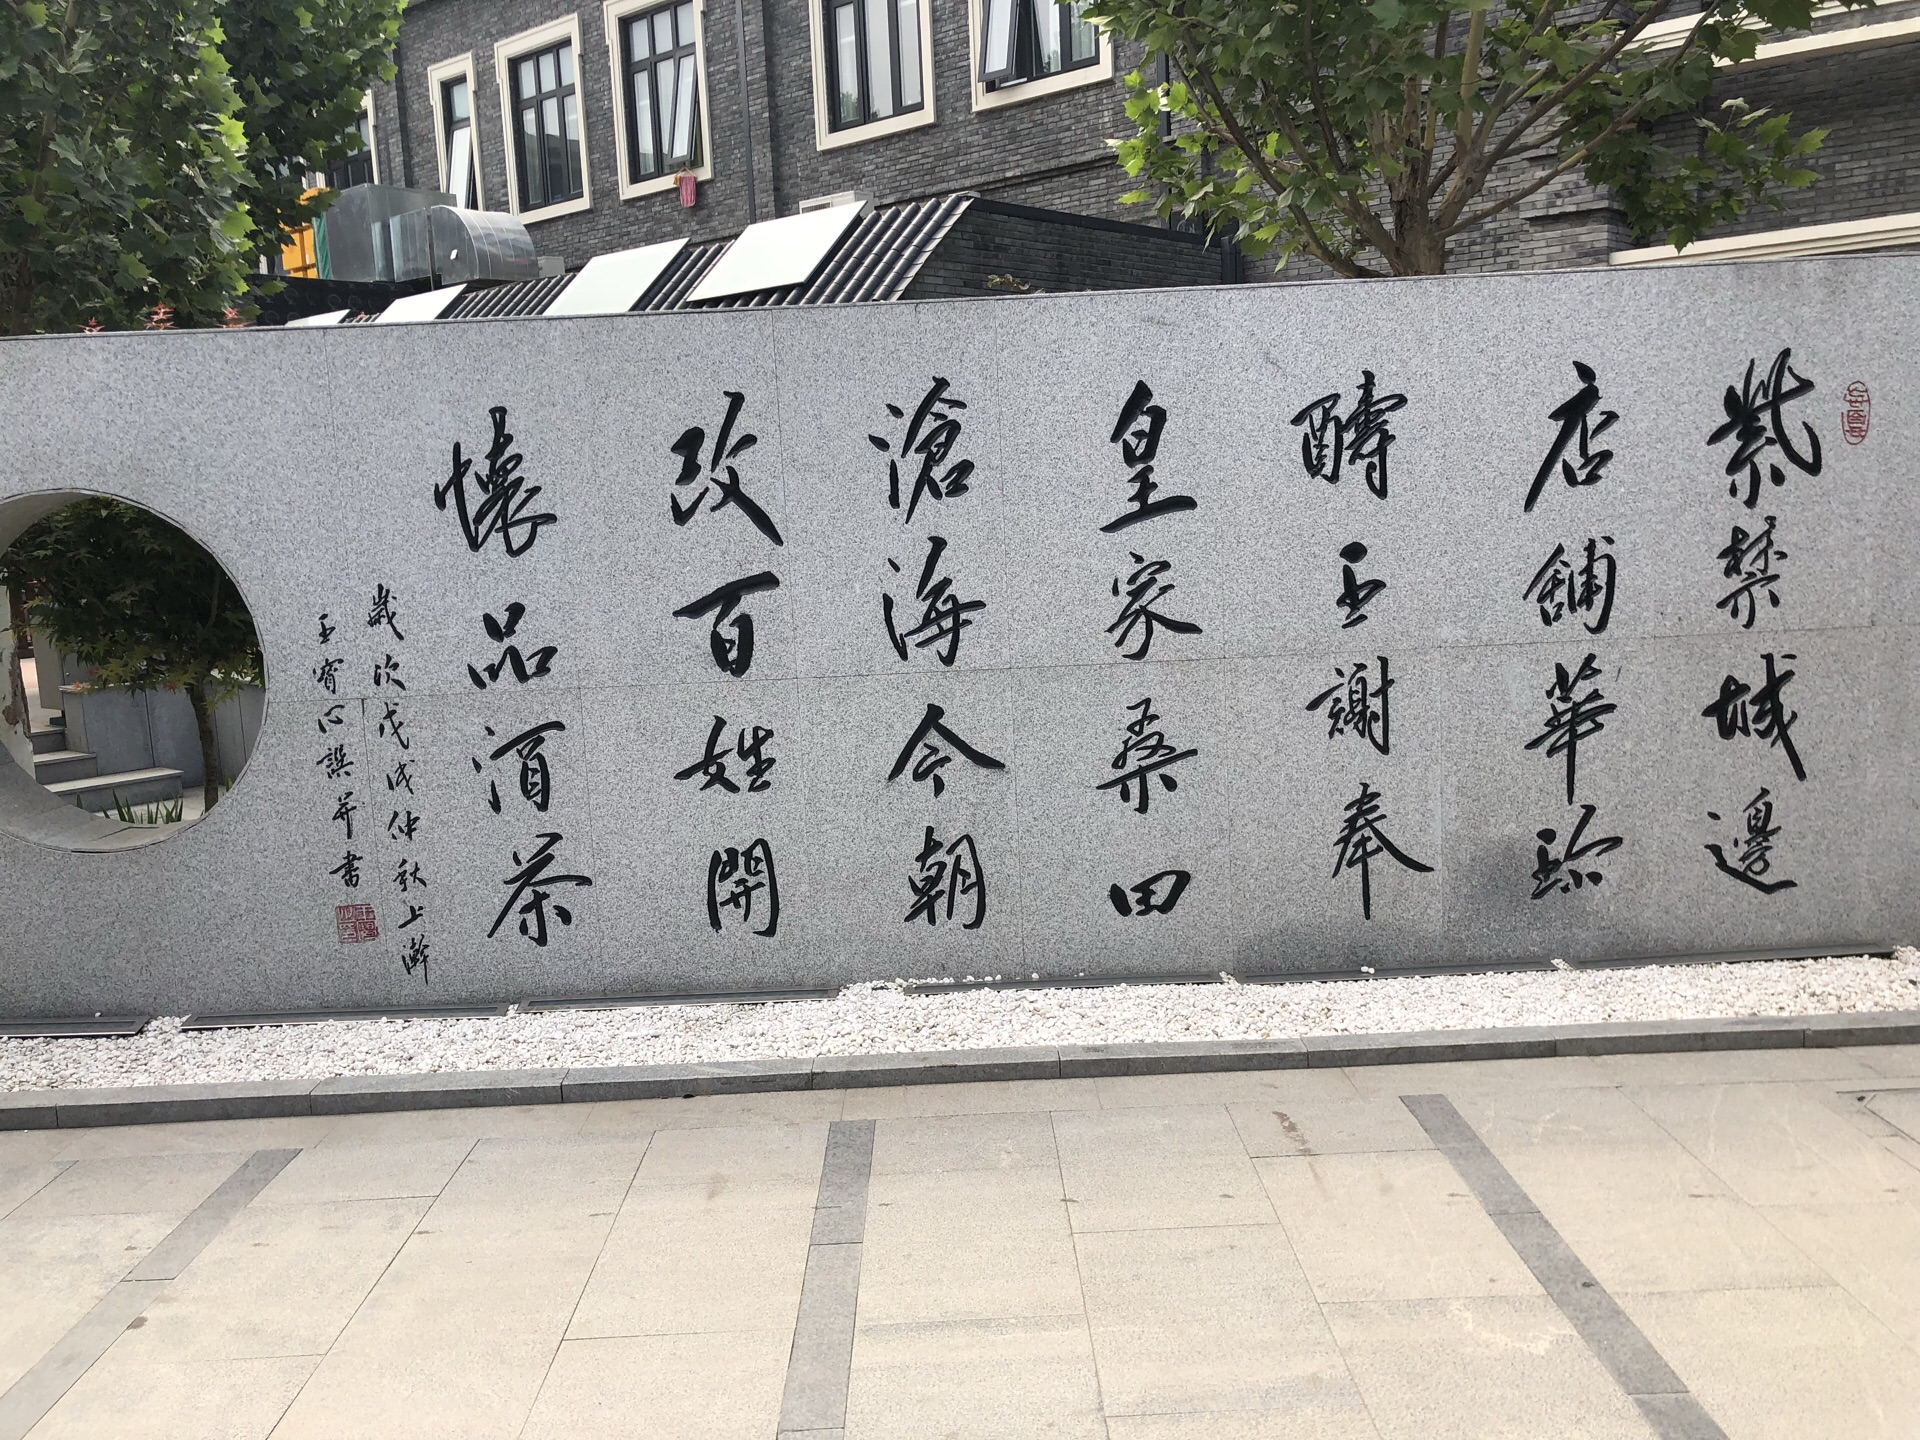 紫禁城邊
店舖華珍
酬王謝奉
皇家桑田
滄海今朝
改百姓開
懷品酒茶
歲次戊戌仲秋上澣
王賓心譔并書